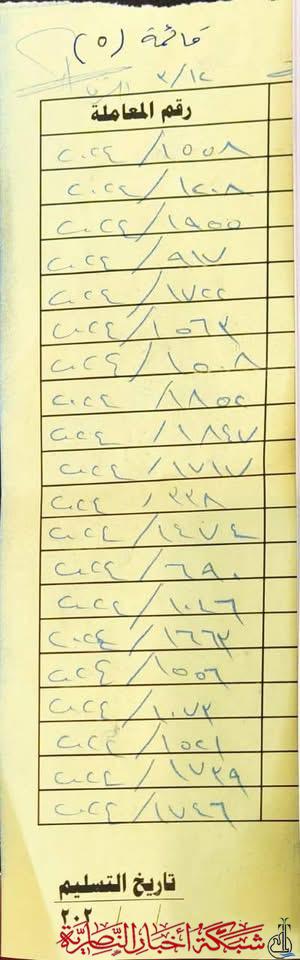 قائمة (٥)
٣/١٢
رقم المعاملة
١٥٥٨/٢٠٢٤
١٢٠٨/٢٠٢٤
١٩٥٥/٢٠٢٤
٩١٧/٢٠٢٤
١٧٢٢/٢٠٢٤
١٥٦٣/٢٠٢٤
١٥٠٨/٢٠٢٤
١٨٥٢/٢٠٢٤
١٨٤٧/٢٠٢٤
١٧١٧/٢٠٢٤
٣٣٨/٢٠٢٤
١٤٧٤/٢٠٢٤
٦٩٠/٢٠٢٤
١٠٤٦/٢٠٢٤
١٦٦٣/٢٠٢٤
١٥٥٦/٢٠٢٤
١٠٧٣/٢٠٢٤
١٥٢١/٢٠٢٤
١٧٣٩/٢٠٢٤
١٧٤٦/٢٠٢٤
تاريخ التسليم
/ / ٢٠٢
شبكة أخبار الناصرية